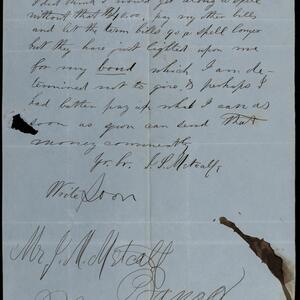 I did think I would get along a spell
without that $1/200, pay my other bills
and let the term bills go a spell longer
but they have just lighted upon me
for my bond which I am de-
termined not to give. So perhaps I
had better pay up what I can as
soon as you can send that
money conveniently
Yr. br. I. S. Metcalf,
Write Soon
Mr J. M. Metcalf
Bangor